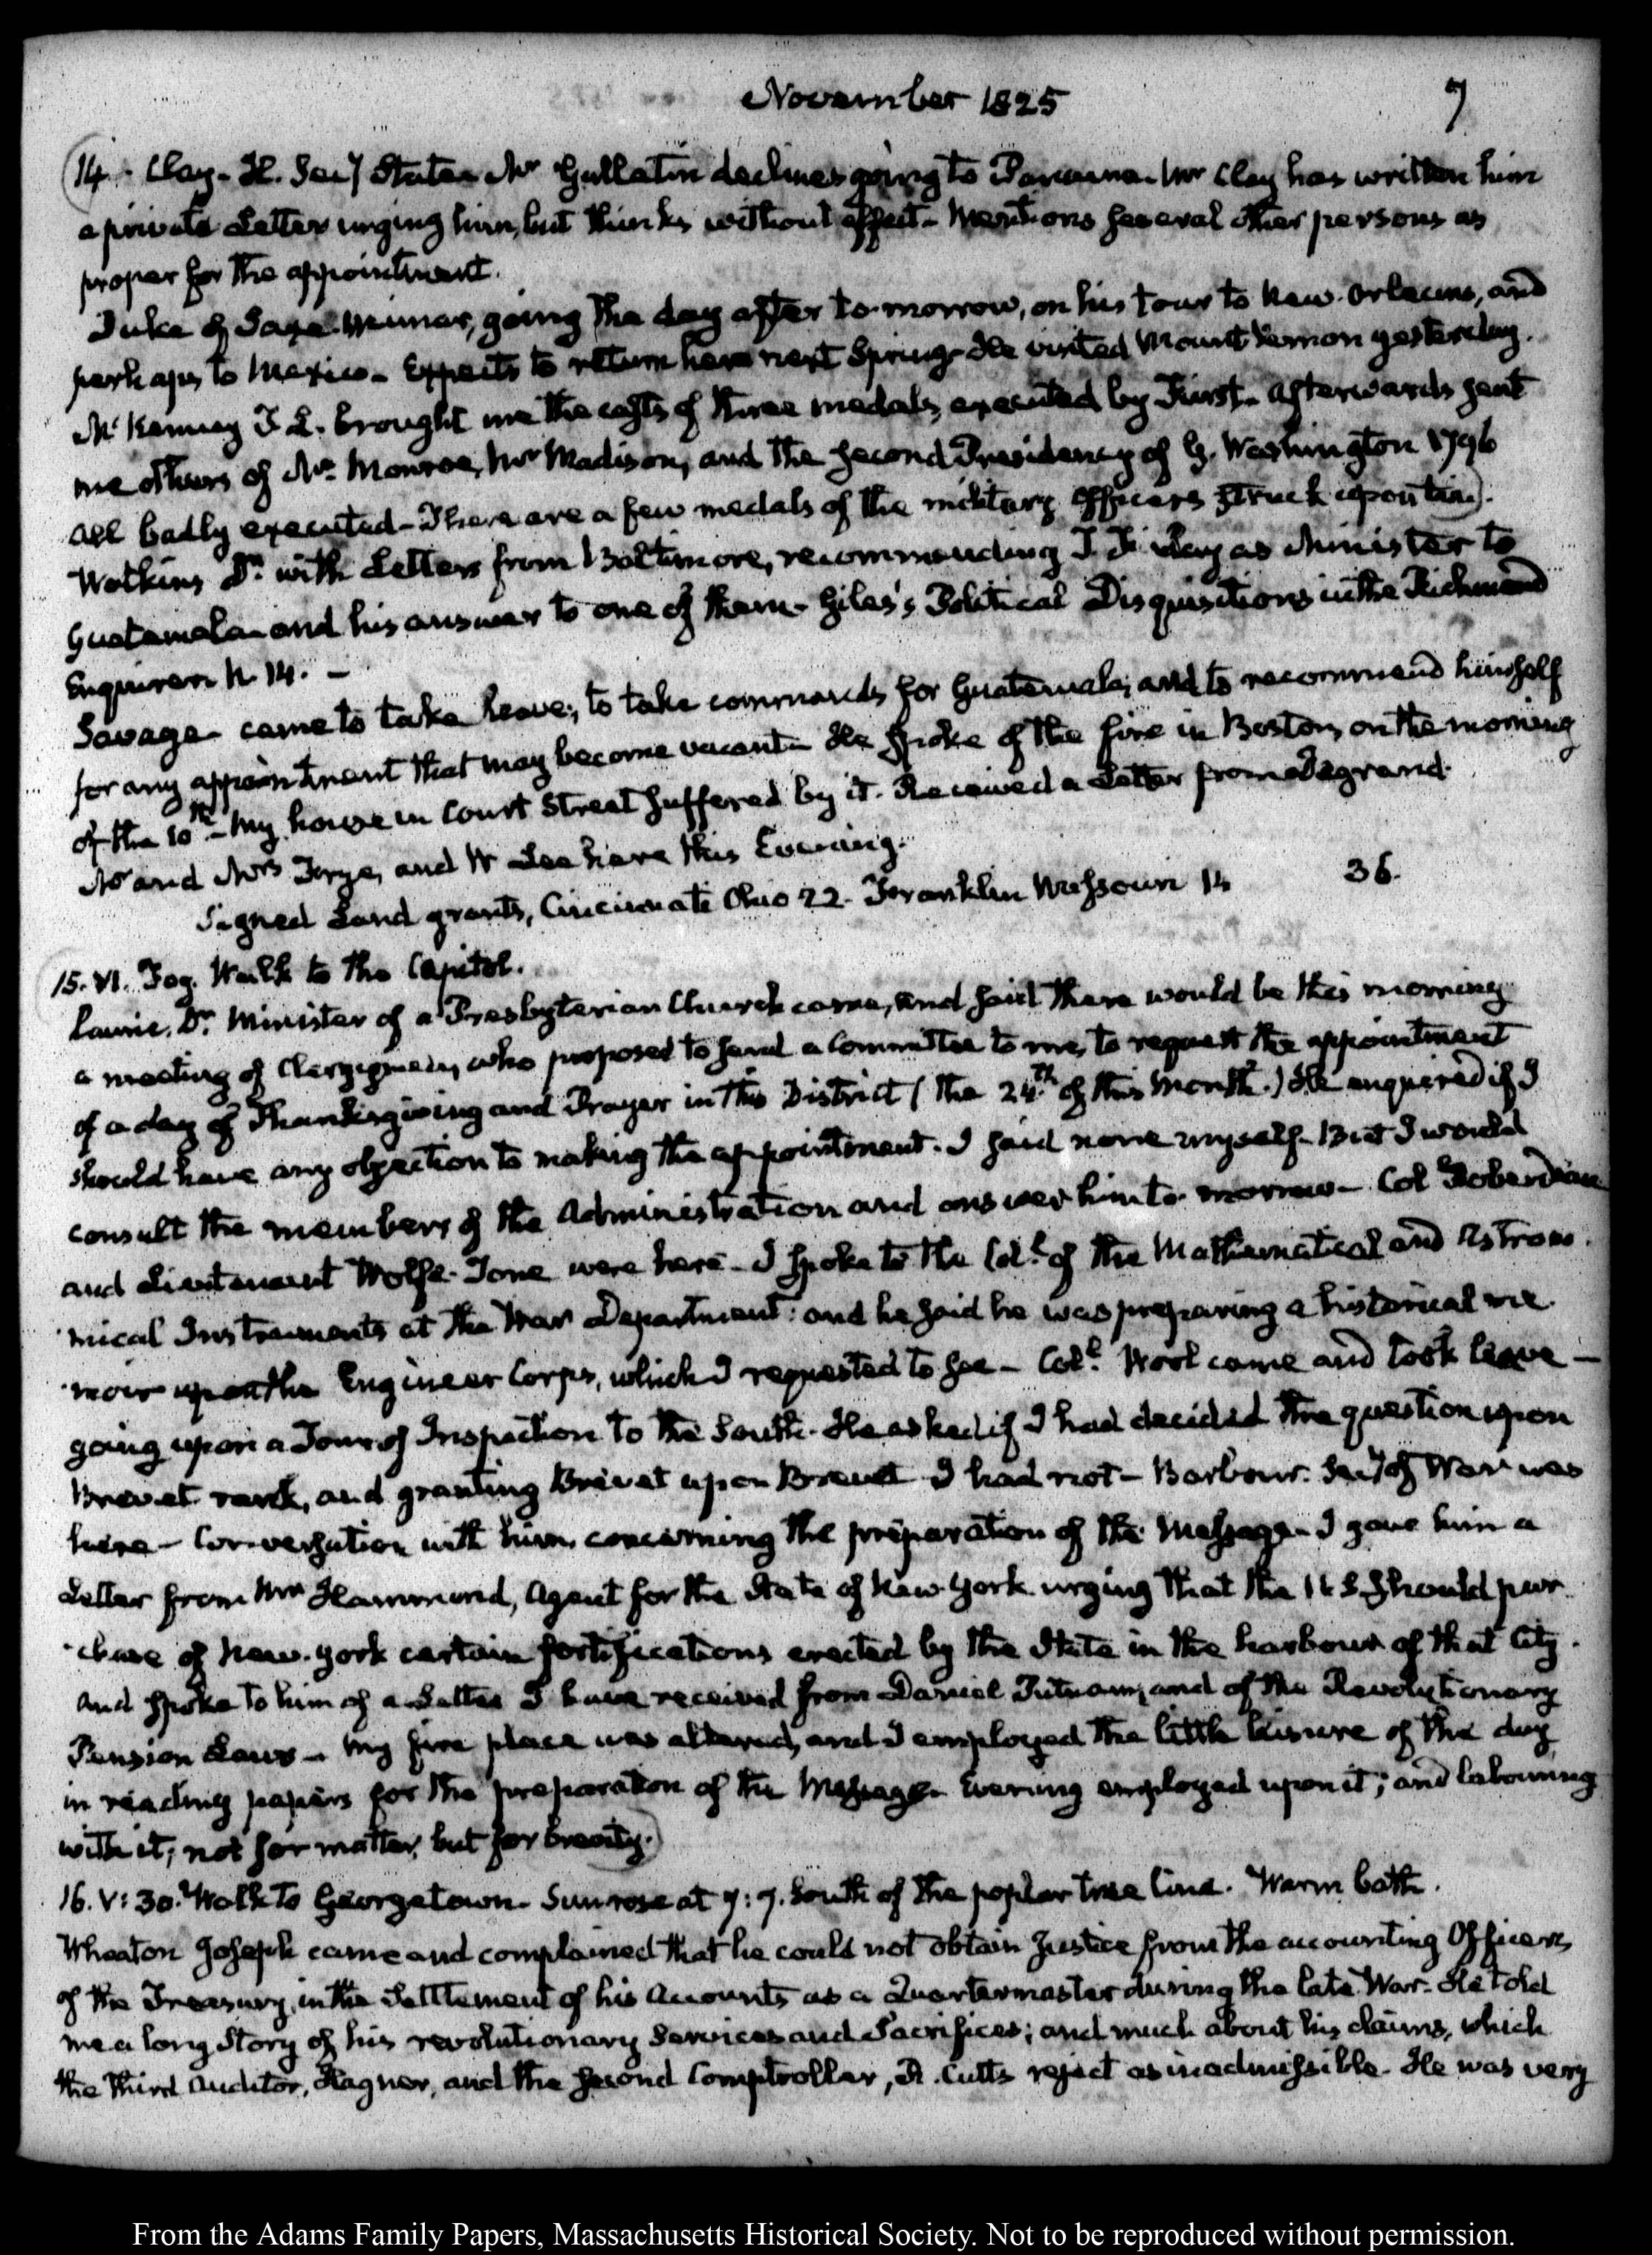 November 1825
7
14. Clay. H. Secy State. Mr Gallatin declines going to Panama. Mr Clay has written him
a private Letter urging him, but thinks without effect. Mentions several other persons as
proper for the appointment.
Duke of Saxe. Weimar, going the day after to-morrow, on his tour to New. Orleans, and
perhaps to Mexico. Expects to return here next Spring. He visited Mount Vernon yesterday.
McKenney T. L. brought me the casts of three medals, executed by Furst. afterwards sent
me others of Mr Monroe, Mr Madison, and the second Presidency of G. Washington 1796
All badly executed. There are a few medals of the military officers struck upon tin).
Watkins Dr with Letters from Baltimore, recommending J. F. May as Minister to
Guatemala. and his answer to one of them. Giles's Political Disquisitions in the Richmond
Enquirer. N. 14. —
Savage. came to take leave; to take commands for Guatemala; and to recommend himself
for any appointment that may become vacant. He spoke of the fire in Boston, on the morning
of the 10th. My house in Court Street suffered by it. Received a Letter from Degrand.
Mr and Mrs Frye, and W Lee here this Evening.
Signed Land grants, Cincinnati Ohio 22. Franklin Missouri 14 36.
15. VI. Fog. Walk to the Capitol.
Laurie. Dr. Minister of a Presbyterian Church came, and said there would be this morning
a meeting of Clergymen, who proposed to send a Committee to me, to request the appointment
of a day of Thanksgiving and Prayer in this District (the 24th of this Month.) He enquired if I
should have any objection to making the appointment. I said none myself. But I would
consult the members of the Administration and answer him to-morrow. Col Roberdeau
and Lieutenant Wolfe. Tone were here. I spoke to the Col. of the Mathematical and Astrono
mical Instruments at the War Department: and he said he was preparing a historical me
moir upon the Engineer Corps, which I requested to see. Col. Wool came and took leave —
going upon a Tour of Inspection to the South. He asked if I had decided the question upon
Brevet rank, and granting Brevet upon Brevet. I had not. Barbour. Secy of War was
here. Conversation with him concerning the preparation of the Message. I gave him a
Letter from Mr Hammond, Agent for the State of New York urging that the U S. should pur
chase of New. York certain fortifications erected by the State in the harbour of that City.
and spoke to him of a Letter I have received from Daniel Putnam, and of the Revolutionary
Pension Laws. My fire place was altered, and I employed the little leisure of the day
in reading papers for the preparation of the Message. Evening employed upon it; and labouring
with it; not for matter, but for brevity.
16. V: 30. Walk to Georgetown. Sun rose at 7: 7. South of the poplar tree line. Warm bath.
Wheaton Joseph came and complained that he could not obtain Justice from the accounting Officers
of the Treasury, in the Settlement of his Accounts as a Quartermaster during the late War. He told
me a long Story of his revolutionary Services and Sacrifices; and much about his claims, which
the Third Auditor, Hagner, and the second Comptroller, R. Cutts reject as inadmissible. He was very
From the Adams Family Papers, Massachusetts Historical Society. Not to be reproduced without permission.